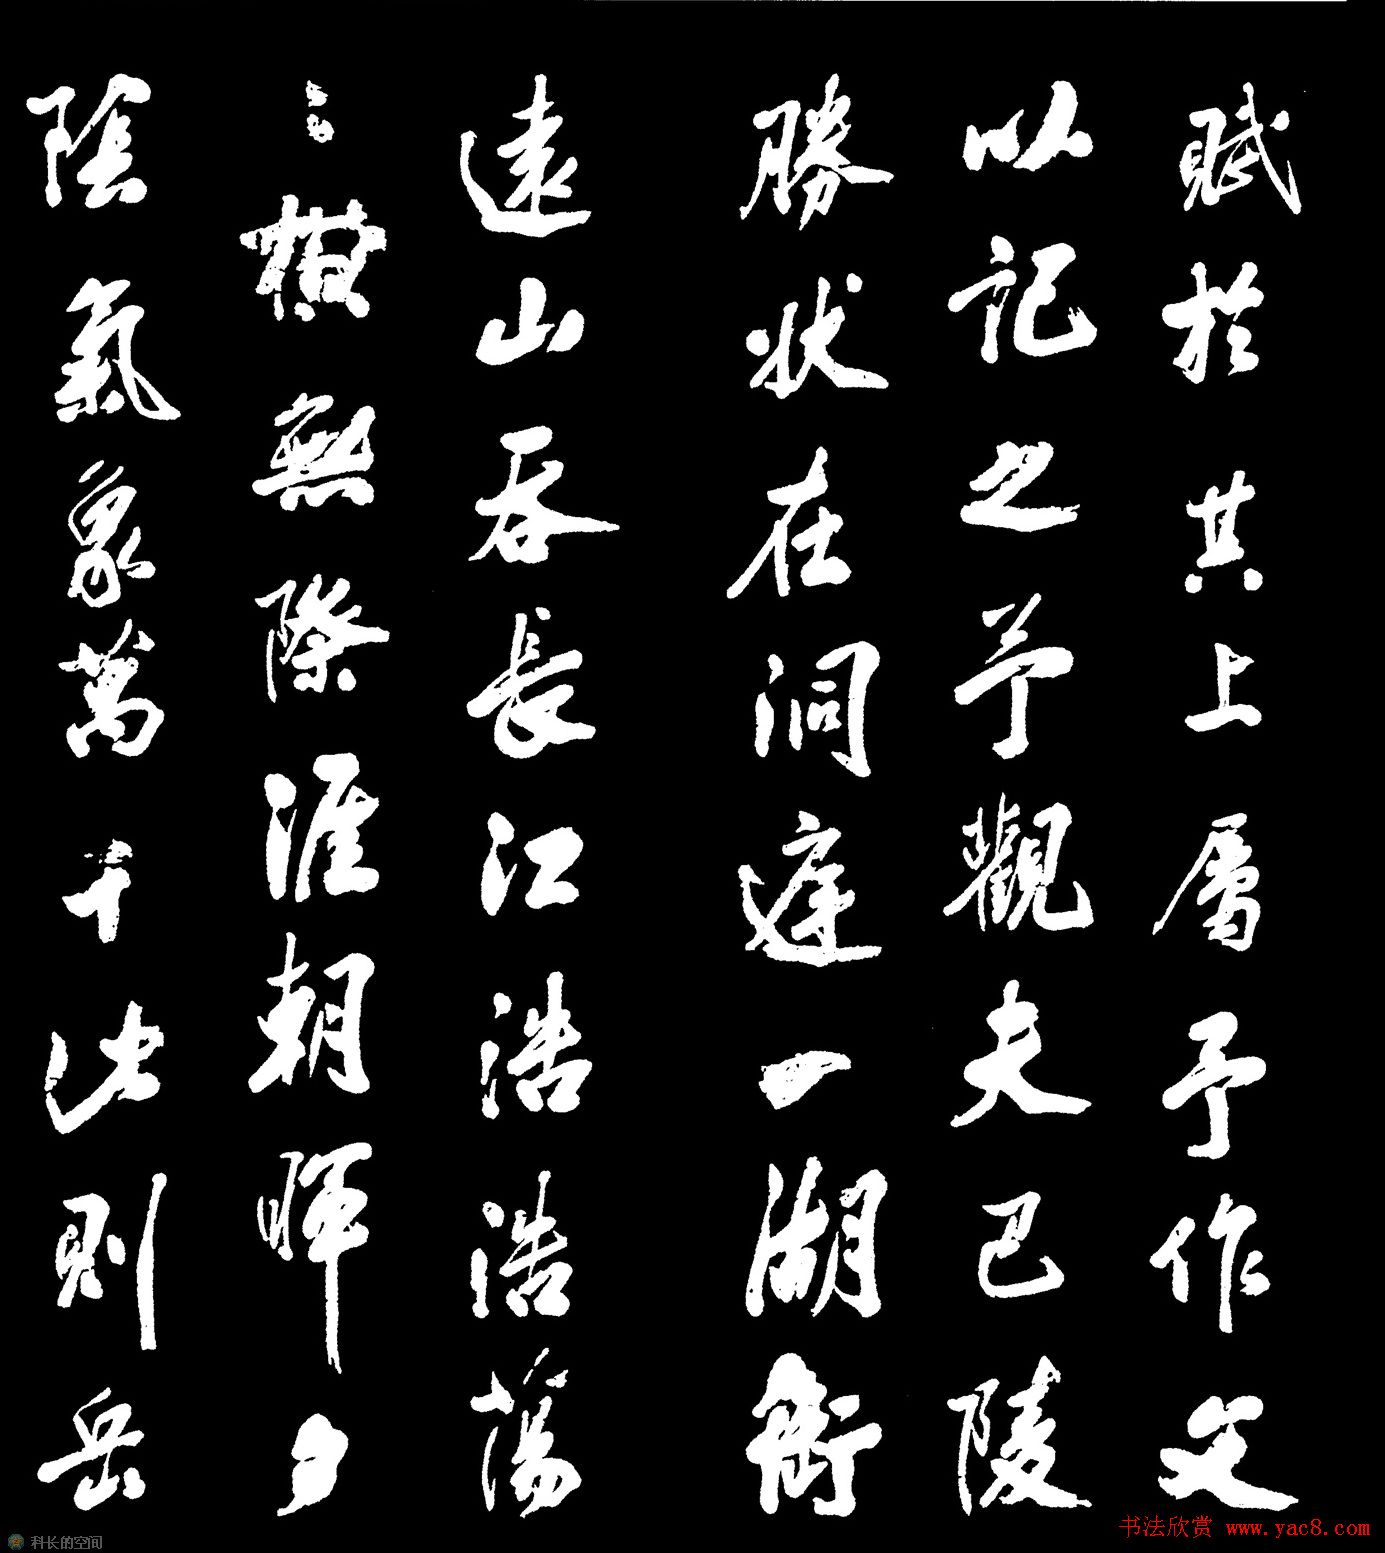 賦於其上屬予作文
以記之予觀夫巴陵
勝狀在洞庭一湖銜
遠山吞長江浩浩蕩
〻橫無際涯朝暉夕
陰氣象萬千此則岳
书法欣赏 www.yac8.com
科长的空间